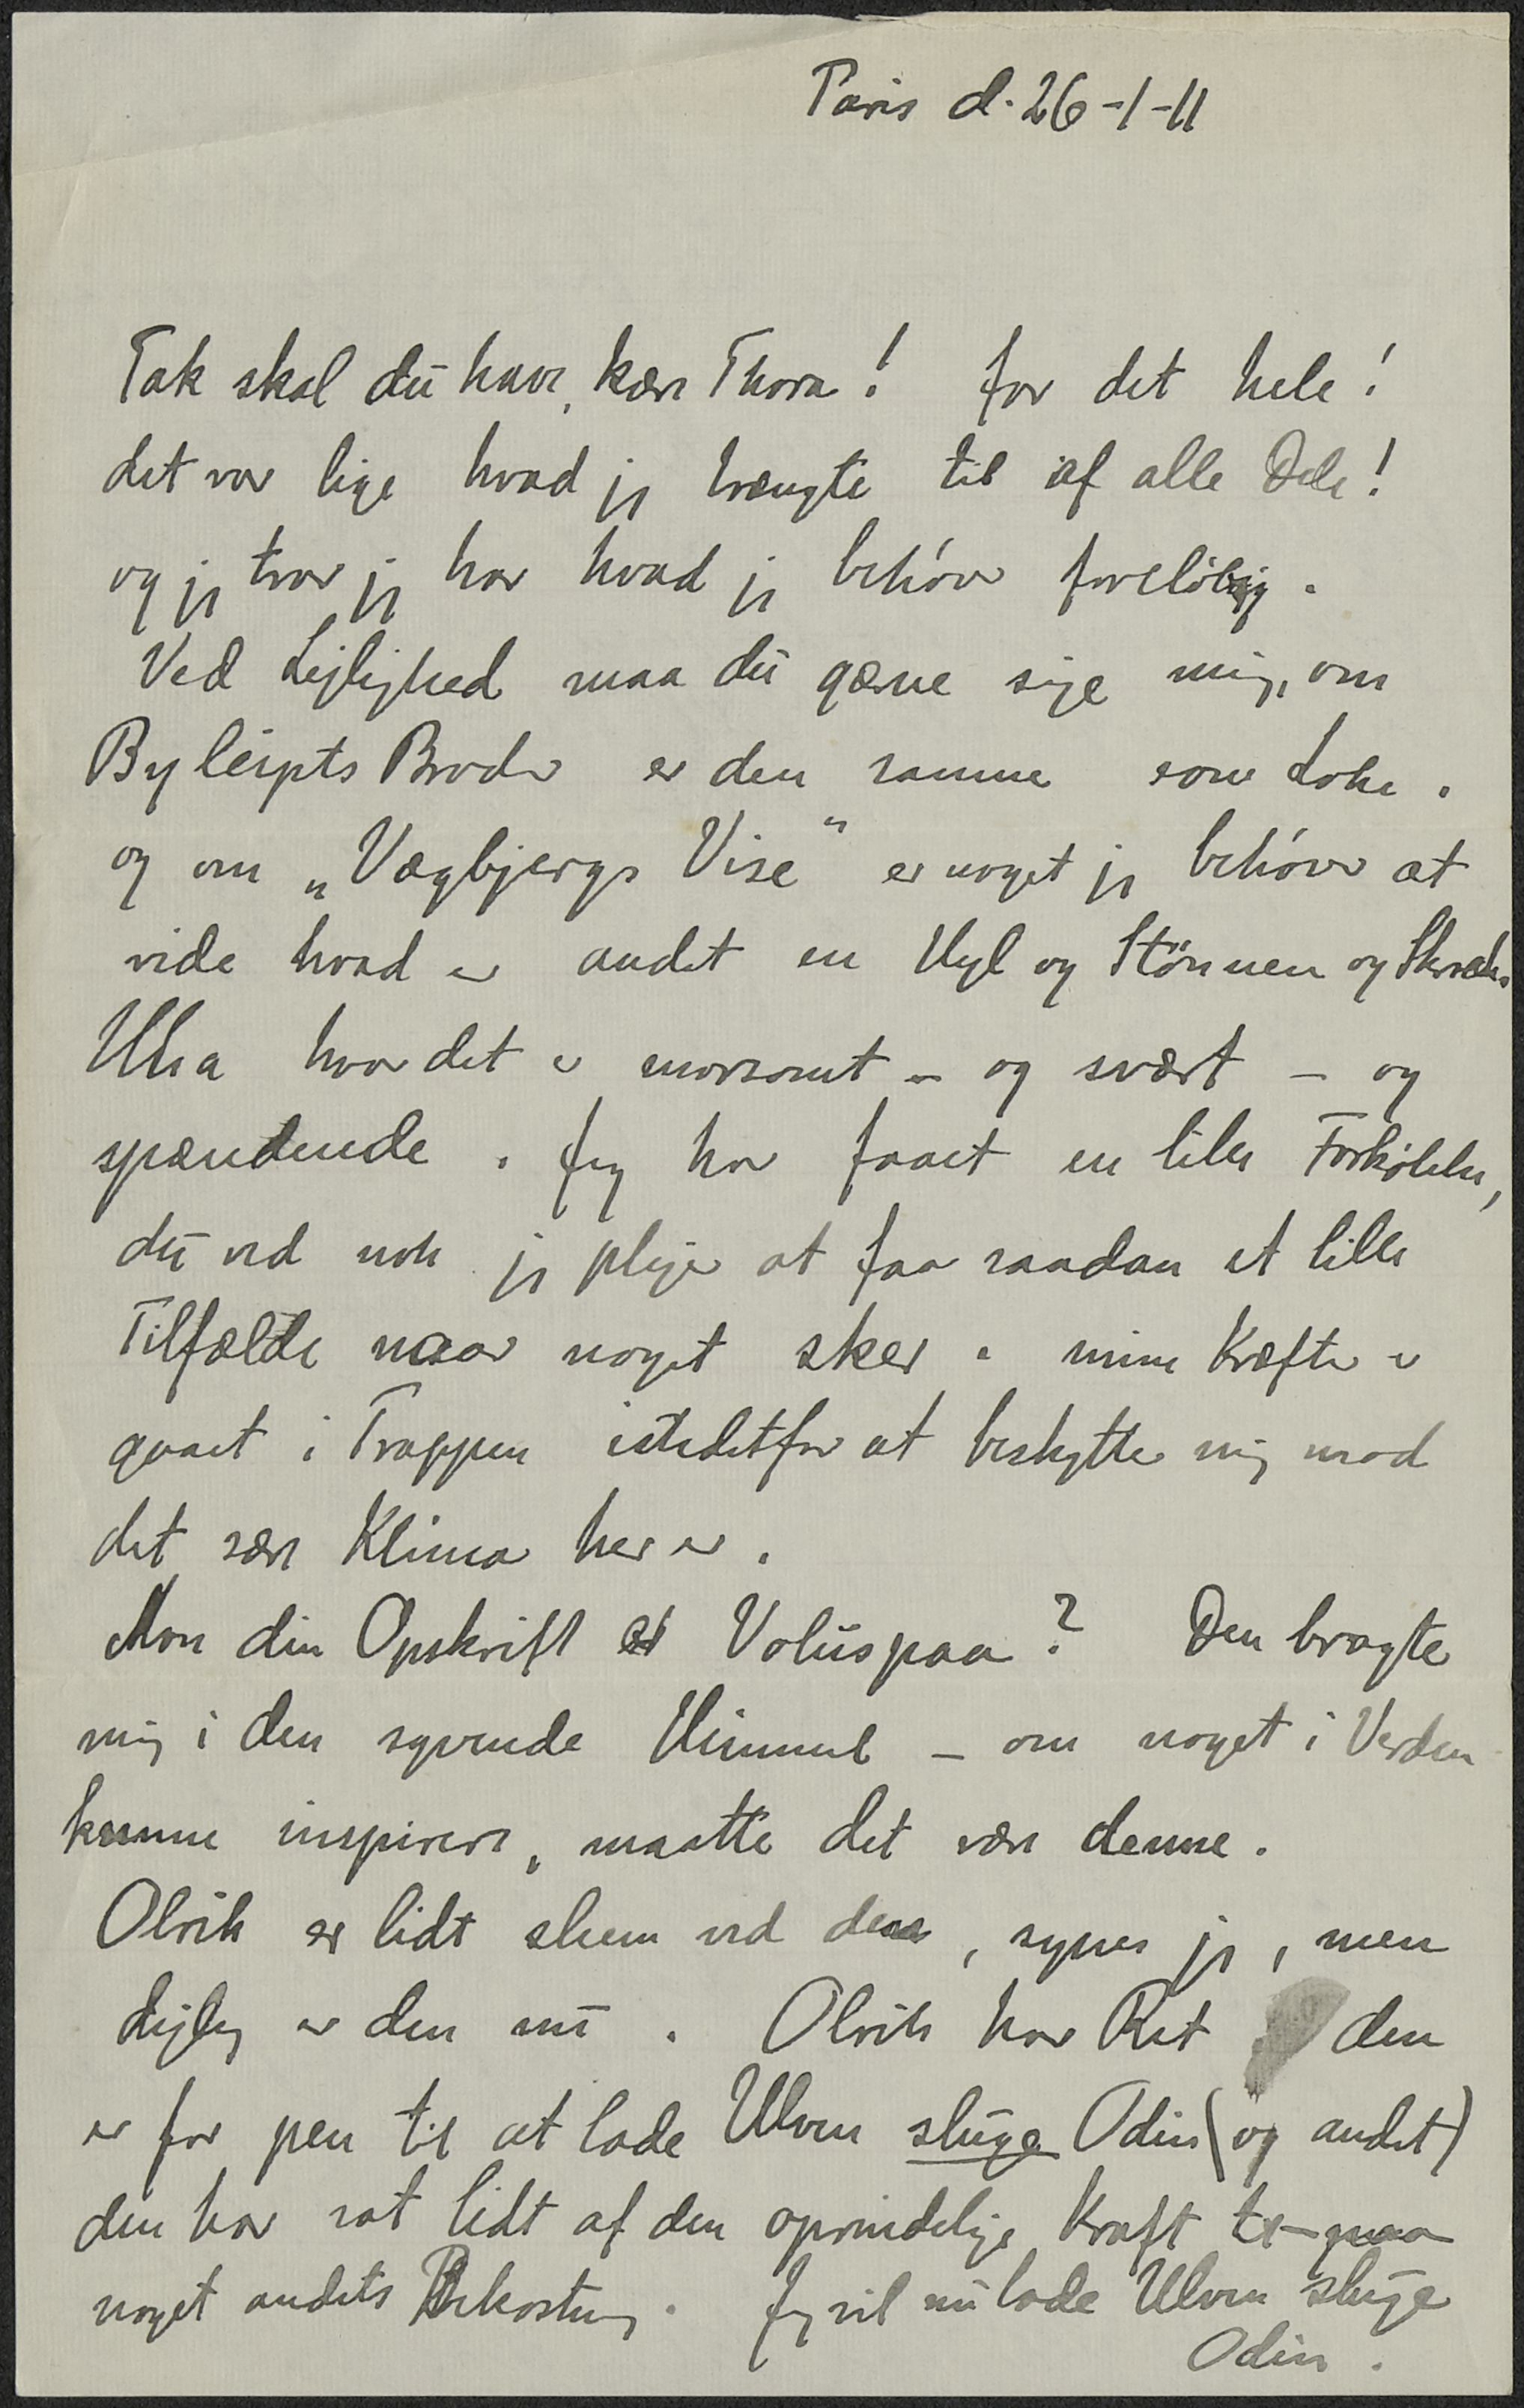 Paris d. 26-1-11
Tak skal du have, kære Thora! for det hele!
det var lige hvad jeg trængte til af alle Dele!
og jeg tror jeg har hvad jeg behöver foreløbig.
Ved Lejlighed maa du gærne sige mig, om
Byleipts Broder er den samme som Loke.
og om „Vægbjergs Vise“ er noget jeg behöver at
vide hvad er andet en Hyl og Stönnen og Skræk.
Uha hvor det er morsomt – og svært – og
spændende. Jeg har faaet en lille Forkølelse,
du ved nok jeg plejer at faa saadan et lille
Tilfælde naar noget sker. mine Kræfter er
gaaet i Trappen istedetfor at beskytte mig mod
det sære Klima her er.
Mon din Opskrift er Voluspaa? Den bragte
mig i den syvende Himmel – om noget i Verden
kunne inspirere, maatte det være denne.
Olrik er lidt slem ved den, synes jeg, men
dejlig er den nu. Olrik har Ret den
er for pen til at lade Ulven sluge Odin (og andet)
den har sat lidt af den oprindelige Kraft til paa
noget andets Bekostning. Jeg vil nu lade Ulven sluge
Odin.